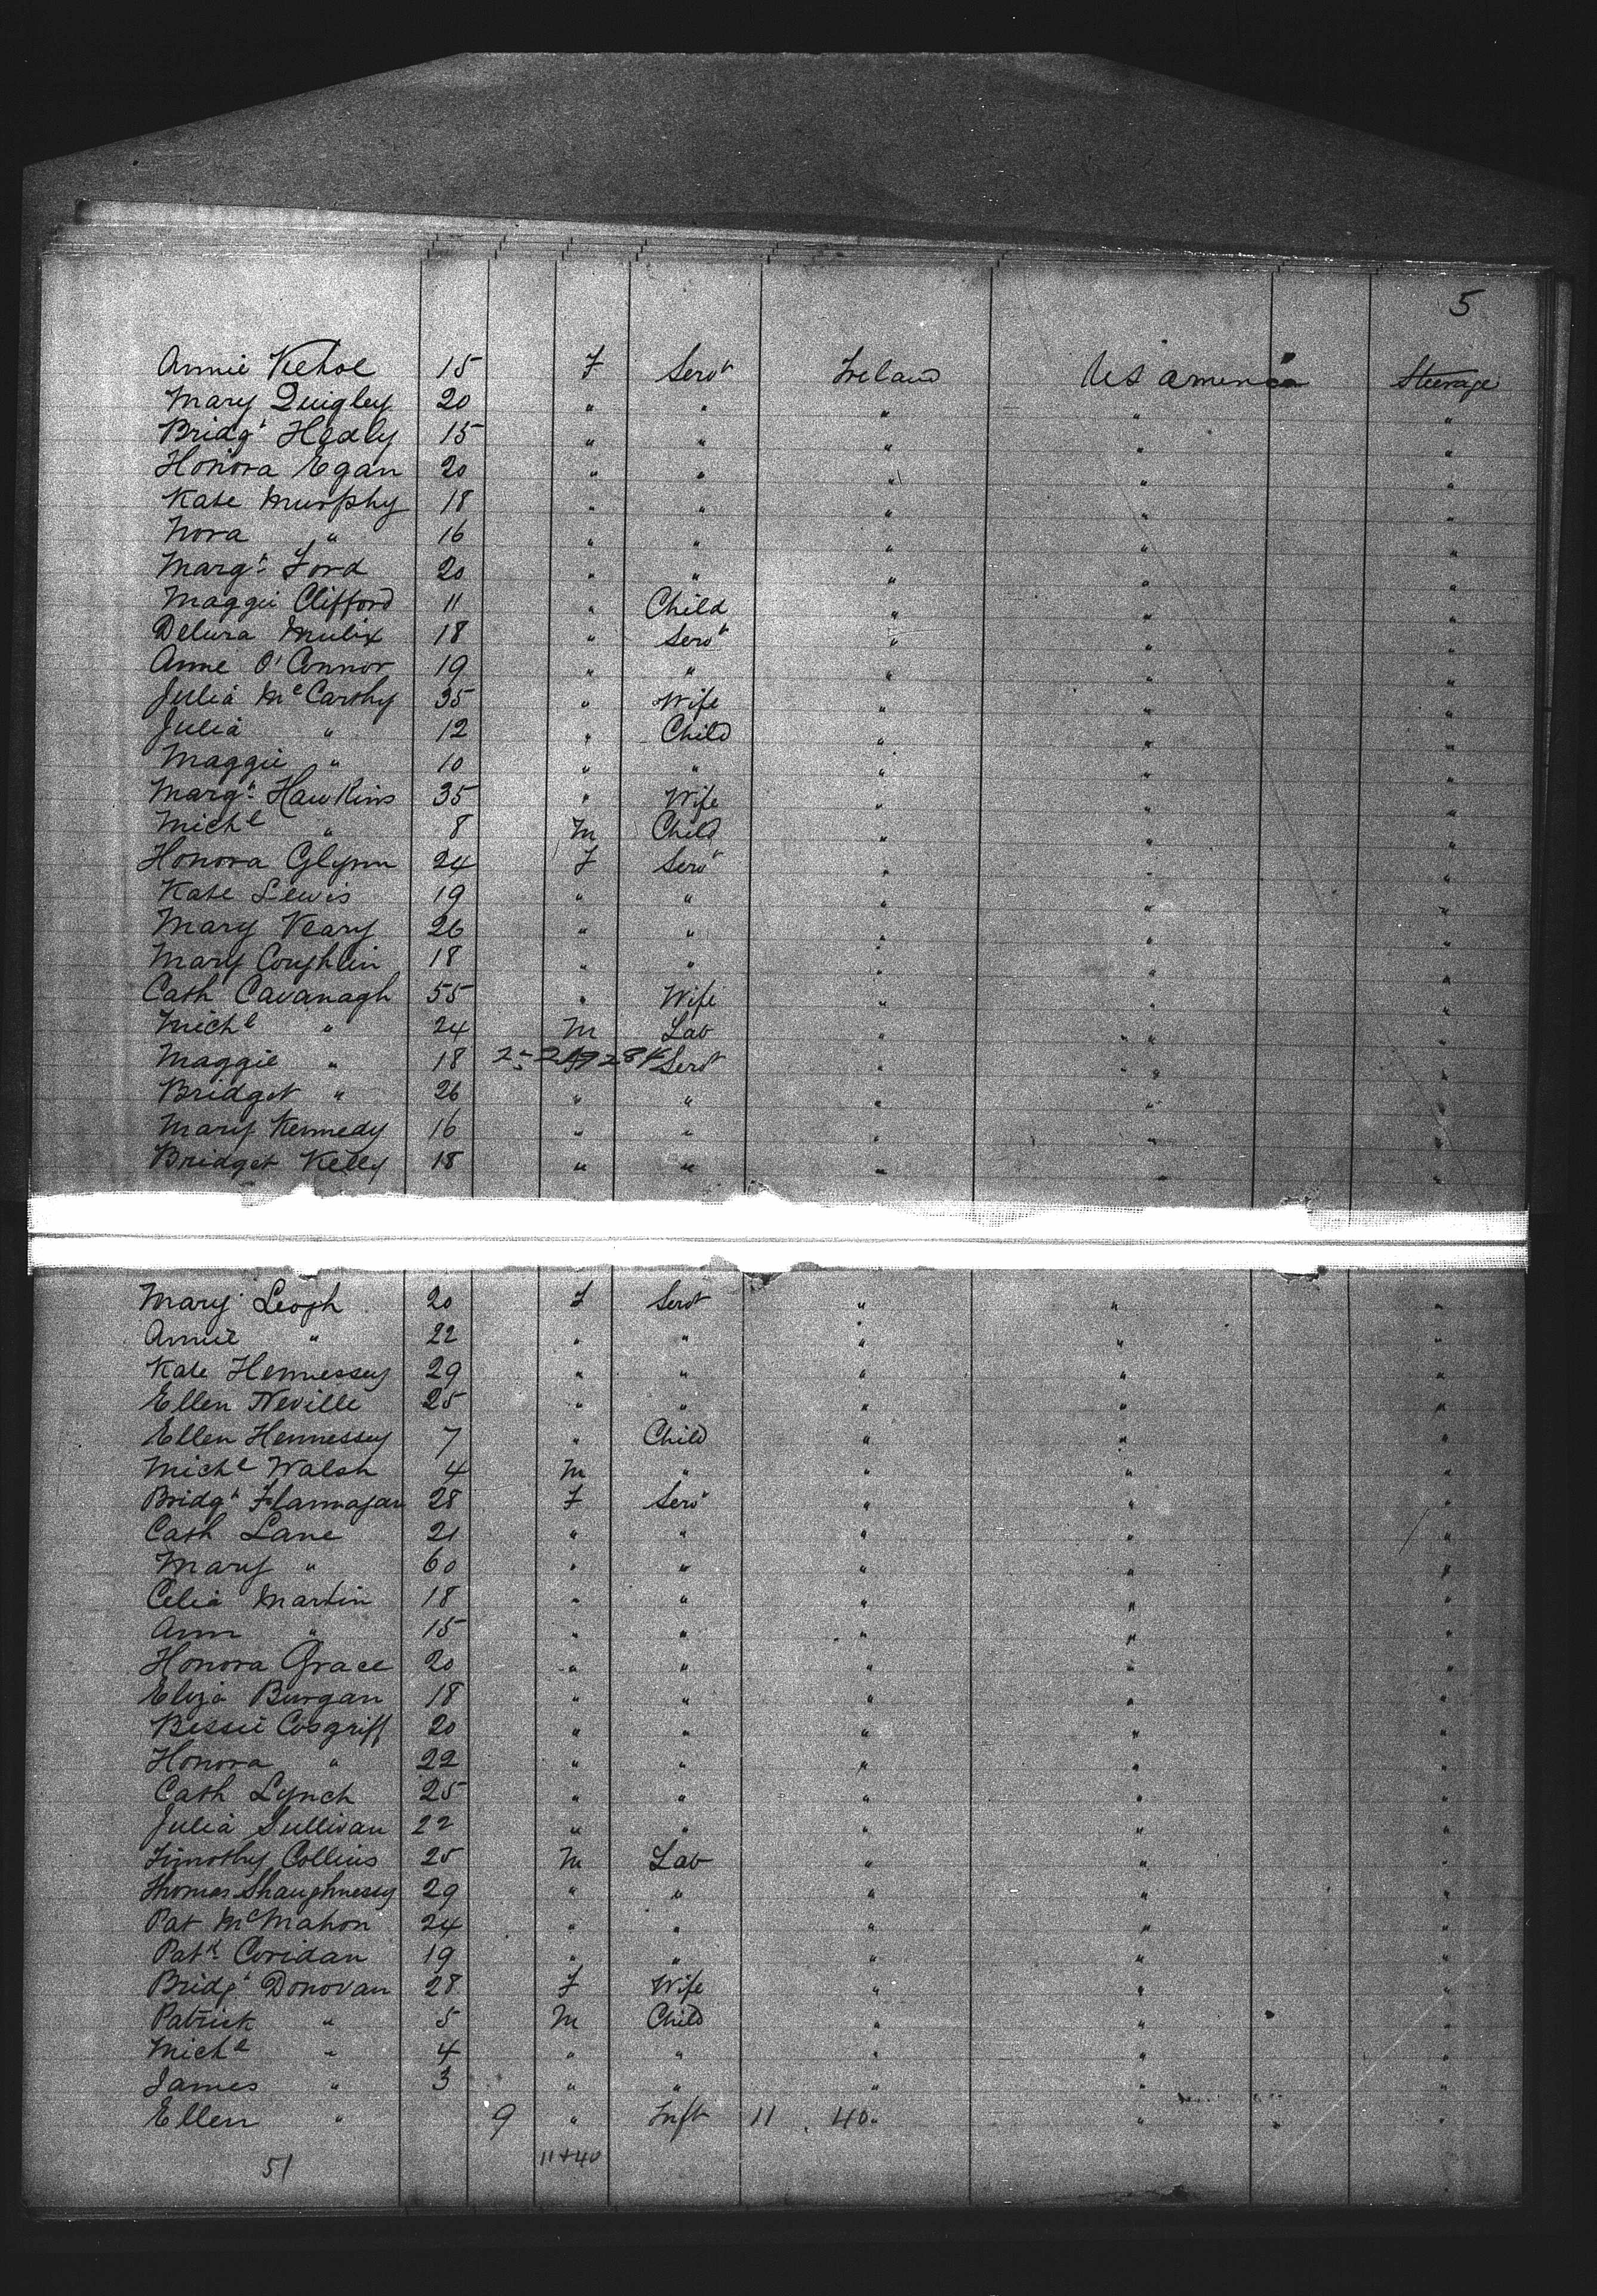 5
Annie Kehoe 15 F Servt Ireland U S America Steerage
Mary Quigley 20 " " " " "
Bridgt Healy 15 " " " " "
Honora Egan 20 " " " " "
Kate Murphy 18 " " " " "
Nora " 16 " " " " "
Margt Ford 20 " " " " "
Maggie Clifford 11 " Child " " "
Delura Mulix 18 " Servt " " "
Anne O'Connor 19 " " " " "
Julia McCarthy 35 " Wife " " "
Julia " 12 " Child " " "
Maggie " 10 " " " " "
Margt Hawkins 35 " Wife " " "
Michl " 8 M Child " " "
Honora Glynn 24 F Servt " " "
Kate Lewis 19 " " " " "
Mary Veary 26 " " " " "
Mary Coughlin 18 " " " " "
Cath Cavanagh 55 " Wife " " "
Michl " 24 M Lab " " "
Maggie " 18 Servt " " "
Bridget " 26 " " " " "
Mary Kennedy 16 " " " " "
Bridget Kelly 18 " " " " "
Mary 20 F Servt " " "
Annie " 22 " " " " "
Kate Hennessey 29 " " " " "
Ellen Neville 25 " " " " "
Ellen Hennessey 7 " Child " " "
Michl Walsh 4 M " " " "
Bridgt Flannagan 28 F Servt " " "
Cath Lane 21 " " " " "
Mary " 60 " " " " "
Celia Martin 18 " " " " "
Ann " 15 " " " " "
Honora Grace 20 " " " " "
Eliza Burgan 18 " " " " "
Bessie Cosgriff 20 " " " " "
Honora " 22 " " " " "
Cath Lynch 25 " " " " "
Julia Sullivan 22 " " " " "
Timothy Collins 25 M Lab " " "
Thomas Shaughnessy 29 " " " " "
Pat McMahon 24 " " " " "
Patk Coridan 19 " " " " "
Bridgt Donovan 28 F Wife " " "
Patrick " 5 M Child " " "
Michl " 4 " " " " "
James " 3 " " " " "
Ellen " 9 " Inft 11 40 " "
51 11+40